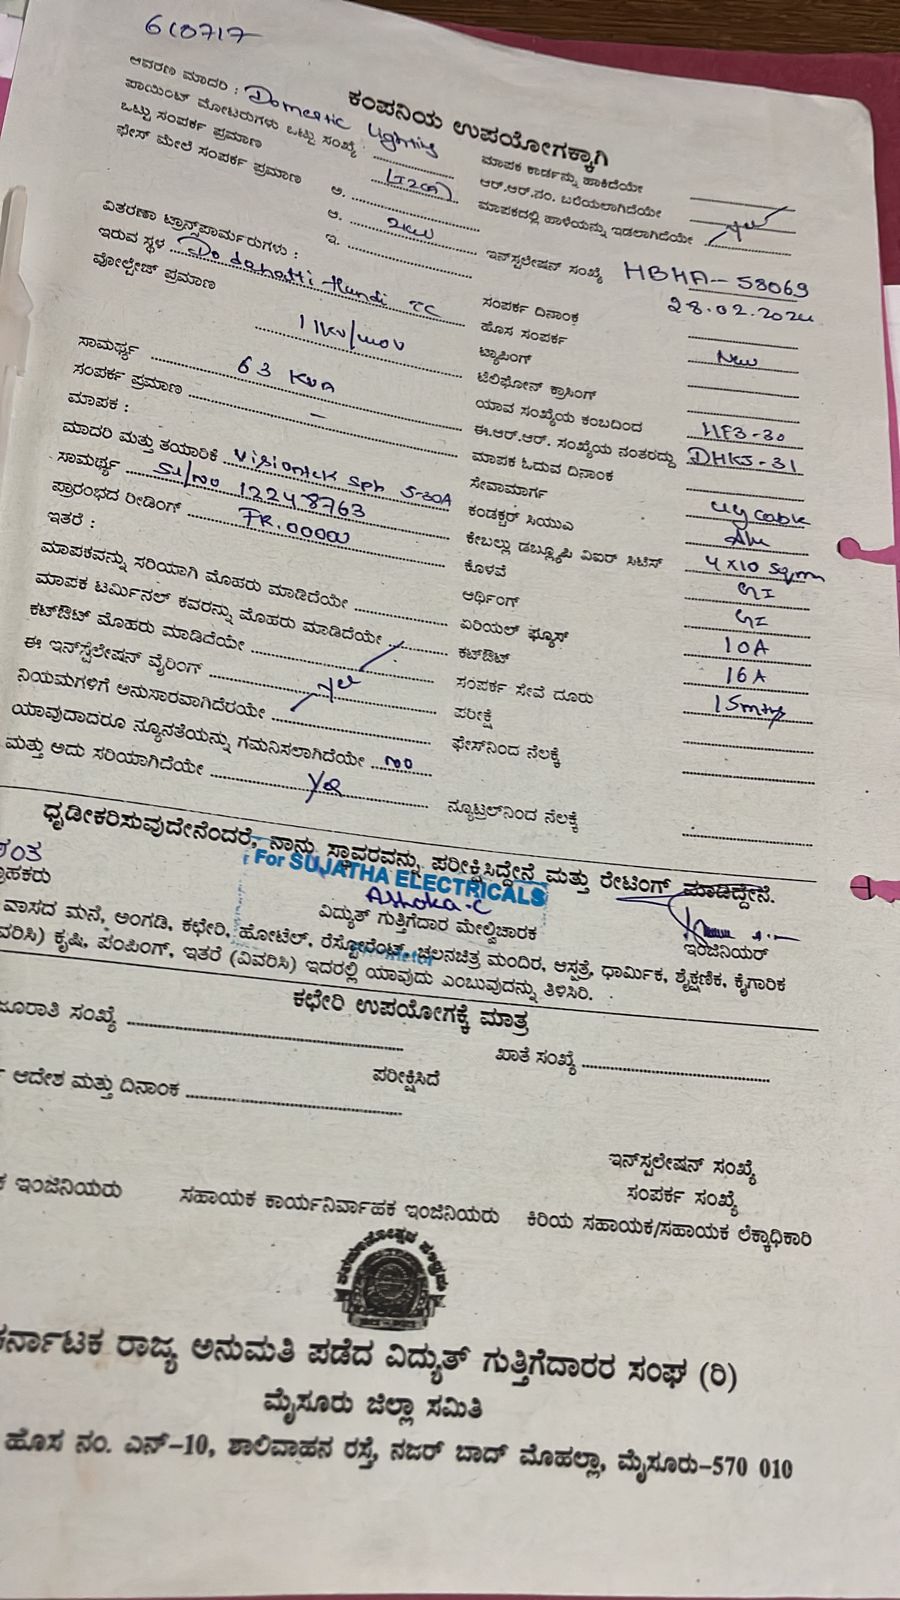 610717
ಕಂಪನಿಯ ಉಪಯೋಗಕ್ಕಾಗಿ
ಆವರಣ ಮಾದರಿ : Domestic Lighting
ಪಾಯಿಂಟ್ ಮೋಟರುಗಳು ಒಟ್ಟು ಸಂಖ್ಯೆ :
ಒಟ್ಟು ಸಂಪರ್ಕ ಪ್ರಮಾಣ LT2(a)
ಫೇಸ್ ಮೇಲೆ ಸಂಪರ್ಕ ಪ್ರಮಾಣ ಅ.
ಆ. 2kw
ಇ.
ವಿತರಣಾ ಟ್ರಾನ್ಸ್‌ಪಾರ್ಮರುಗಳು :
ಇರುವ ಸ್ಥಳ Dodahatti Hundi TC
ವೋಲ್ಟೇಜ್ ಪ್ರಮಾಣ
11kv/400V
ಸಾಮರ್ಥ್ಯ 63 KVA
ಸಂಪರ್ಕ ಪ್ರಮಾಣ –
ಮಾಪಕ :
ಮಾದರಿ ಮತ್ತು ತಯಾರಿಕೆ Visiontek Sph 5-30A
ಸಾಮರ್ಥ್ಯ Sl/No 12248763
ಪ್ರಾರಂಭದ ರೀಡಿಂಗ್ FR. 00000
ಇತರೆ :
ಮಾಪಕವನ್ನು ಸರಿಯಾಗಿ ಮೊಹರು ಮಾಡಿದೆಯೇ
ಮಾಪಕ ಟರ್ಮಿನಲ್ ಕವರನ್ನು ಮೊಹರು ಮಾಡಿದೆಯೇ
ಕಟ್‌ಔಟ್ ಮೊಹರು ಮಾಡಿದೆಯೇ
ಈ ಇನ್‌ಸ್ಟಲೇಷನ್ ವೈರಿಂಗ್ Yes
ನಿಯಮಗಳಿಗೆ ಅನುಸಾರವಾಗಿದೆರಯೇ
ಯಾವುದಾದರೂ ನ್ಯೂನತೆಯನ್ನು ಗಮನಿಸಲಾಗಿದೆಯೇ No
ಮತ್ತು ಅದು ಸರಿಯಾಗಿದೆಯೇ Yes
ಮಾಪಕ ಕಾರ್ಡನ್ನು ಹಾಕಿದೆಯೇ
ಆರ್.ಆರ್.ನಂ. ಬರೆಯಲಾಗಿದೆಯೇ
ಮಾಪಕದಲ್ಲಿ ಹಾಳೆಯನ್ನು ಇಡಲಾಗಿದೆಯೇ Yes
ಇನ್‌ಸ್ಟಲೇಷನ್ ಸಂಖ್ಯೆ HBHA-58069
ಸಂಪರ್ಕ ದಿನಾಂಕ 28.02.2024
ಹೊಸ ಸಂಪರ್ಕ
ಟ್ಯಾಪಿಂಗ್ New
ಟೆಲಿಫೋನ್ ಕ್ರಾಸಿಂಗ್
ಯಾವ ಸಂಖ್ಯೆಯ ಕಂಬದಿಂದ
ಈ.ಆರ್.ಆರ್. ಸಂಖ್ಯೆಯ ನಂತರದ್ದು HF3-30
ಮಾಪಕ ಓದುವ ದಿನಾಂಕ DHKJ-31
ಸೇವಾಮಾರ್ಗ
ಕಂಡಕ್ಟರ್ ಸಿಯುಎ UG Cable
ಕೇಬಲ್ಲು ಡಬ್ಲ್ಯೂಪಿ ಎಐರ್ ಸಿಟಿಸ್ Alu
ಕೊಳವೆ 4x10 Sqmm
ಆರ್ಥಿಂಗ್ GI
ಏರಿಯಲ್ ಫ್ಯೂಸ್ GI
ಕಟ್‌ಔಟ್ 10A
ಸಂಪರ್ಕ ಸೇವೆ ದೂರು 16A
ಪರೀಕ್ಷೆ 15mtrs
ಫೇಸ್‌ನಿಂದ ನೆಲಕ್ಕೆ
ನ್ಯೂಟ್ರಲ್‌ನಿಂದ ನೆಲಕ್ಕೆ
ಧೃಡೀಕರಿಸುವುದೇನೆಂದರೆ, ನಾನು ಸ್ಥಾವರವನ್ನು ಪರೀಕ್ಷಿಸಿದ್ದೇನೆ ಮತ್ತು ರೇಟಿಂಗ್ ಮಾಡಿದ್ದೇನೆ.
For SUJATHA ELECTRICALS
Ashoka.C
ವಿದ್ಯುತ್ ಗುತ್ತಿಗೆದಾರ ಮೇಲ್ವಿಚಾರಕ
ಇಂಜಿನಿಯರ್
ವಾಸದ ಮನೆ, ಅಂಗಡಿ, ಕಛೇರಿ, ಹೋಟೆಲ್, ರೆಸ್ಟೋರೆಂಟ್, ಚಲನಚಿತ್ರ ಮಂದಿರ, ಆಸ್ಪತ್ರೆ, ಧಾರ್ಮಿಕ, ಶೈಕ್ಷಣಿಕ, ಕೈಗಾರಿಕ
ವರಿಸಿ) ಕೃಷಿ, ಪಂಪಿಂಗ್, ಇತರೆ (ವಿವರಿಸಿ) ಇದರಲ್ಲಿ ಯಾವುದು ಎಂಬುವುದನ್ನು ತಿಳಿಸಿರಿ.
ಕಛೇರಿ ಉಪಯೋಗಕ್ಕೆ ಮಾತ್ರ
ಜೂರಾತಿ ಸಂಖ್ಯೆ
ಖಾತೆ ಸಂಖ್ಯೆ
ಆದೇಶ ಮತ್ತು ದಿನಾಂಕ
ಪರೀಕ್ಷಿಸಿದೆ
ಇನ್‌ಸ್ಟಲೇಷನ್ ಸಂಖ್ಯೆ
ಸಂಪರ್ಕ ಸಂಖ್ಯೆ
ಕ ಇಂಜಿನಿಯರು ಸಹಾಯಕ ಕಾರ್ಯನಿರ್ವಾಹಕ ಇಂಜಿನಿಯರು ಕಿರಿಯ ಸಹಾಯಕ/ಸಹಾಯಕ ಲೆಕ್ಕಾಧಿಕಾರಿ
ಕರ್ನಾಟಕ ರಾಜ್ಯ ಅನುಮತಿ ಪಡೆದ ವಿದ್ಯುತ್ ಗುತ್ತಿಗೆದಾರರ ಸಂಘ (ರಿ)
ಮೈಸೂರು ಜಿಲ್ಲಾ ಸಮಿತಿ
ಹೊಸ ನಂ. ಎನ್-10, ಶಾಲಿವಾಹನ ರಸ್ತೆ, ನಜರ್ ಬಾದ್ ಮೊಹಲ್ಲಾ, ಮೈಸೂರು-570 010